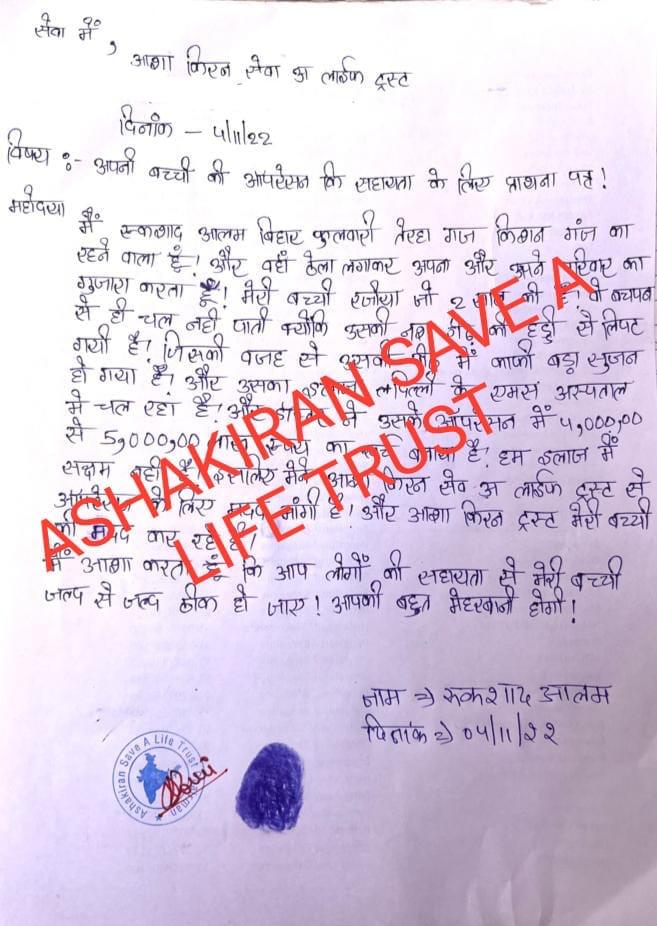 सेवा में,
आशा किरन सेवा अ लाईफ ट्रस्ट
दिनांक - 4/11/22
विषय :- अपनी बच्ची की आपरेसन कि सहायता के लिए प्राथना पत्र!
महोदया
मैं रुकशाद आलम बिहार फुलवारी तेरहा गाज किशन गंज का
रहने वाला हूं! और वहां ठेला लगाकर अपना और अपने परिवार का
गुजारा करता हूँ! मेरी बच्ची रजीया जो 2 साल की है! वो बचपन
से ही चल नही पाती क्योंकि उसकी नश की हड्डी से लिपट
गयी है! जिसकी वजह से उसकी में काफी बड़ा सुजन
हो गया है! और उसका के एमस अस्पताल
मे चल रहा है! और ने उसके आपरेसन में 4,000,00
से 5,000,00 लाख रुपये का खर्च बताया है! हम इलाज में
सक्षम नही है इसलिए मैने आशा किरन सेव अ लाईफ ट्रस्ट से
आपरेसन के लिए मदद मांगी है! और आशा किरन ट्रस्ट मेरी बच्ची
की मदद कर रहे है!
मैं आशा करता हूँ कि आप लोगों की सहायता से मेरी बच्ची
जल्द से जल्द ठीक हो जाए! आपकी बहुत मेहरबानी होगी!
ASHAKIRAN SAVE A
LIFE TRUST
नाम => रुकशाद आलम
दिनांक => 04/11/22
Ashakiran Save A Life Trust